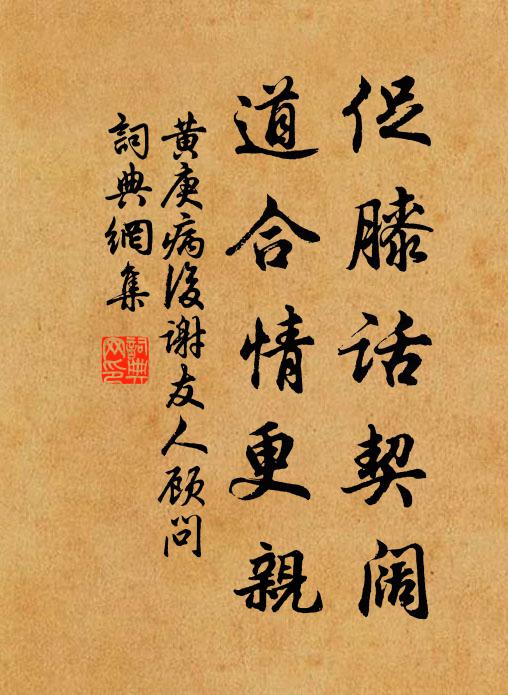 促膝话契阔
道合情更親
黄庚病後谢友人顾问
詞典網集
詞典网印